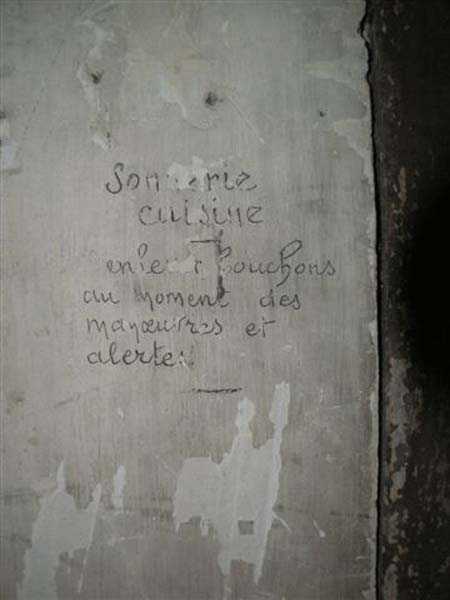 Sonnerie
cuisine
enlever bouchons
au moment des
manœuvres et
alertes.